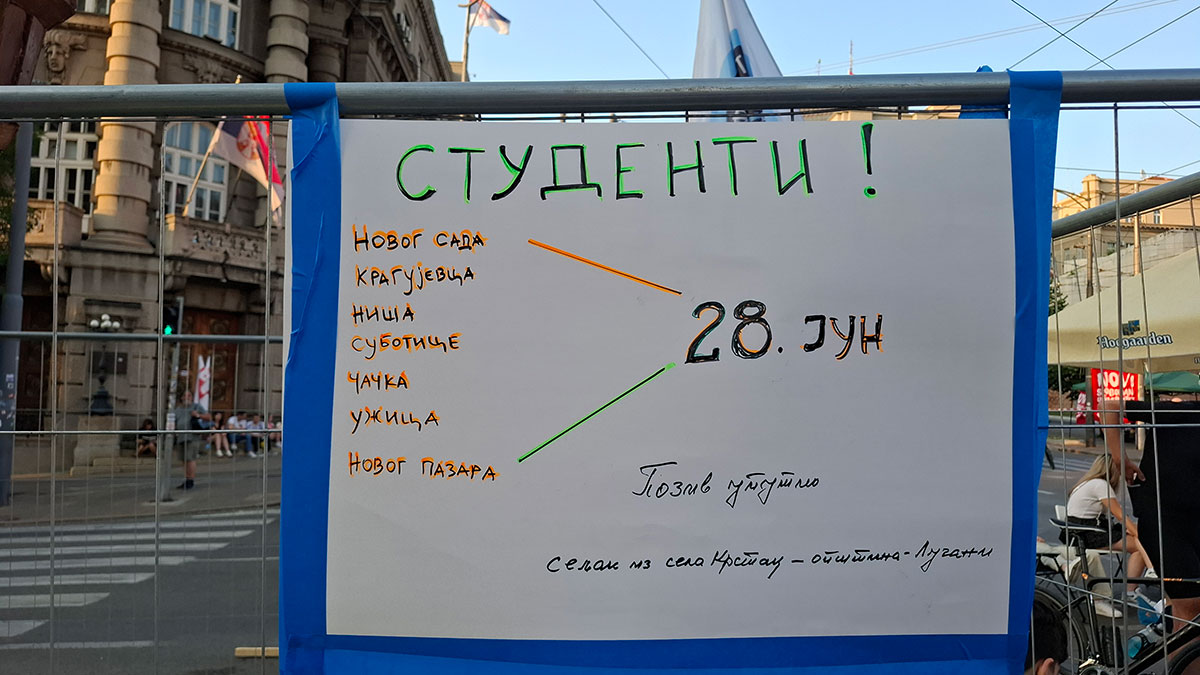 СТУДЕНТИ !
НОВОГ САДА
КРАГУЈЕВЦА
НИША
СУБОТИЦЕ
ЧАЧКА
УЖИЦА
НОВОГ ПАЗАРА
28. ЈУН
Позив упутио
сељак из села Крстац – општина - Лучани
Hoegaarden
NOVI